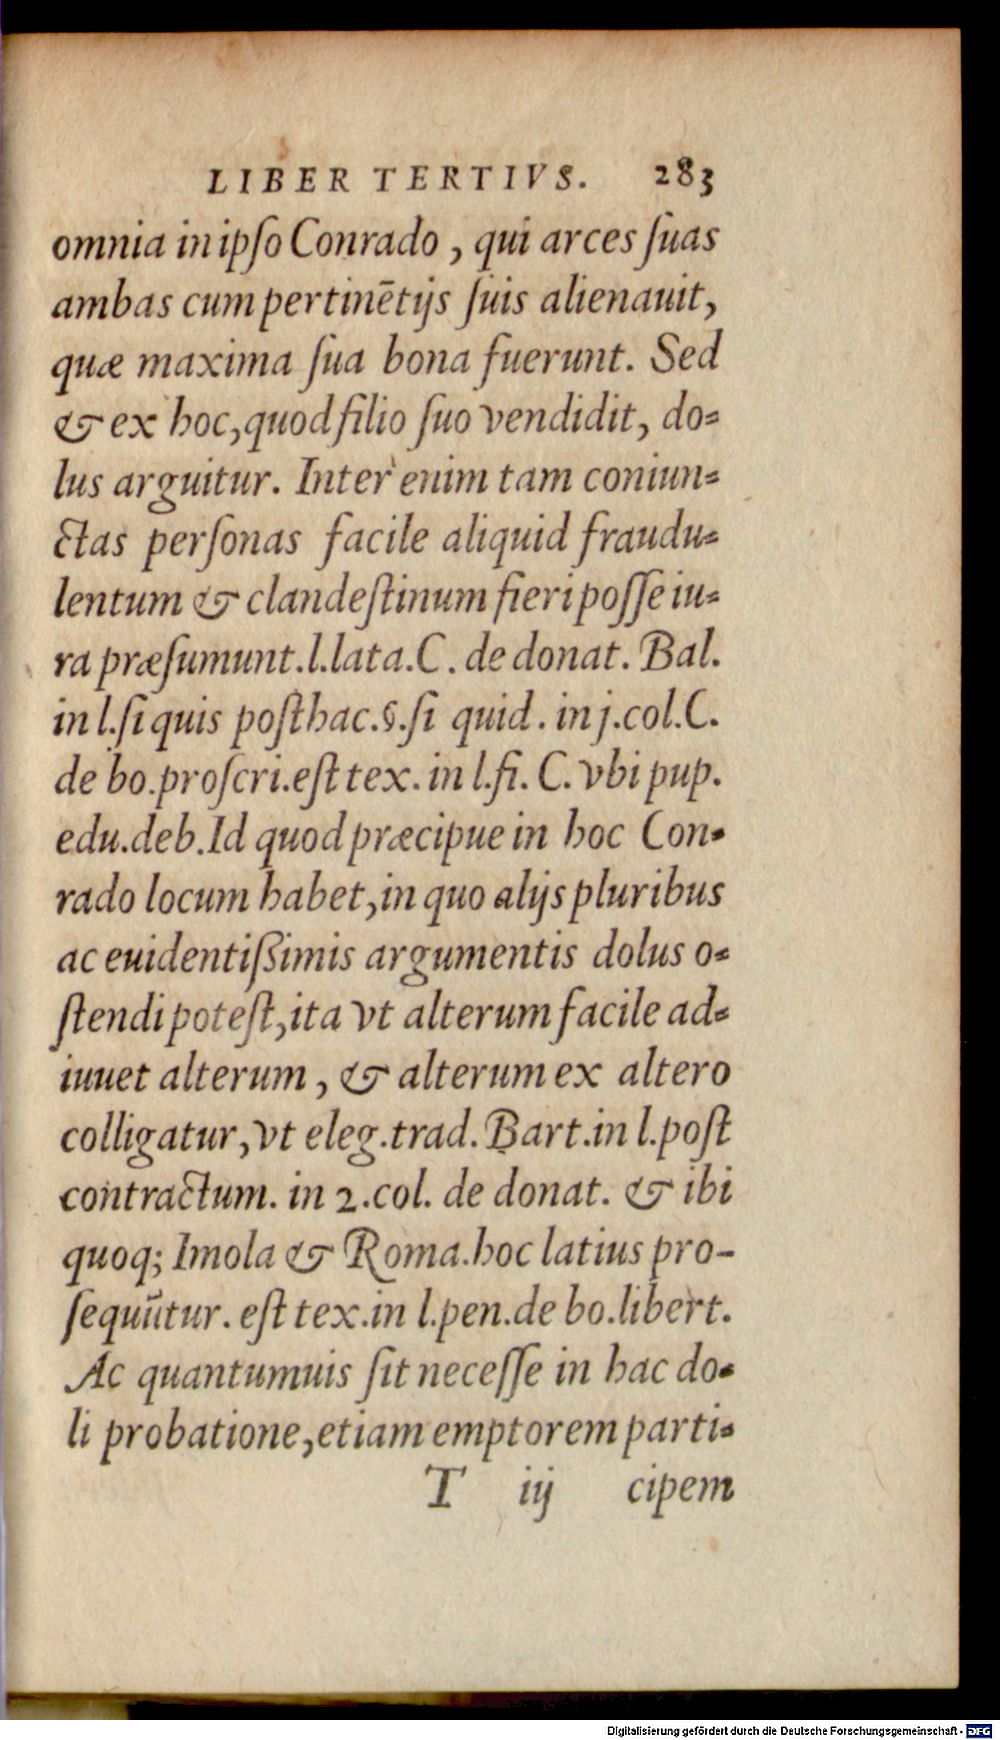 LIBER TERTIVS. 283
omnia in ipſo Conrado , qui arces ſuas
ambas cum pertinētijs ſuis alienauit,
quæ maxima ſua bona fuerunt. Sed
& ex hoc, quod filio ſuo vendidit, do-
lus arguitur. Inter enim tam coniun-
ctas perſonas facile aliquid fraudu-
lentum & clandeſtinum fieri poſſe iu-
ra præſumunt. l. lata. C. de donat. Bal.
in l. ſi quis poſthac. §. ſi quid. in j. col. C.
de bo. proſcri. eſt tex. in l. fi. C. vbi pup.
edu. deb. Id quod præcipue in hoc Con-
rado locum habet, in quo alijs pluribus
ac euidentiſſimis argumentis dolus o-
ſtendi poteſt, ita vt alterum facile ad-
iuuet alterum , & alterum ex altero
colligatur, vt eleg. trad. Bart. in l. poſt
contractum. in 2. col. de donat. & ibi
quoq; Imola & Roma. hoc latius pro-
ſequūtur. eſt tex. in l. pen. de bo. libert.
Ac quantumuis ſit neceſſe in hac do-
li probatione, etiam emptorem parti-
T iij cipem
Digitalisierung gefördert durch die Deutsche Forschungsgemeinschaft - DFG